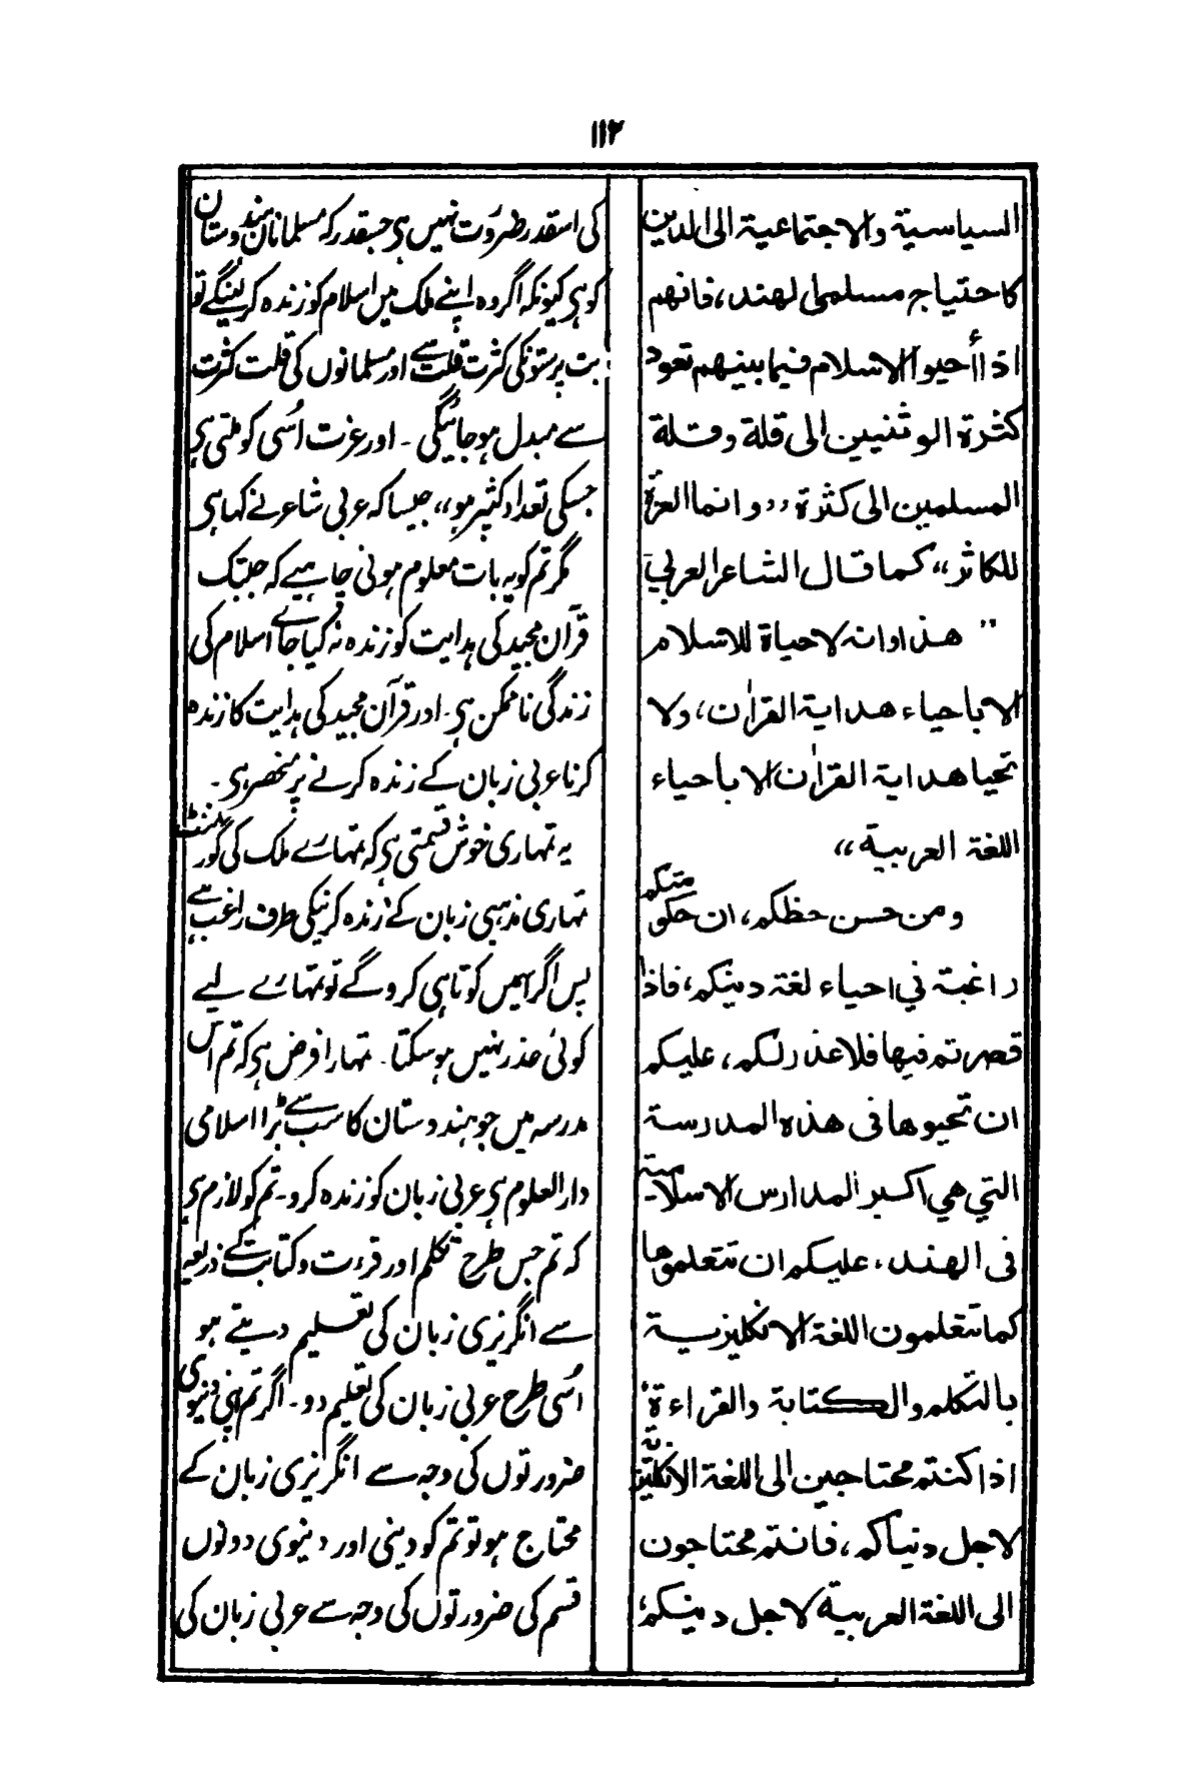 ۱۱۲
السياسية والاجتماعية الى الدين
كاحتياج مسلمى الهند، فانهم
اذا أحيوا الاسلام فيما بينهم تعود
كثرة الوثنيين الى قلة وقلة
المسلمين الى كثرة ,,وانما العزة
للكاثر،، كما قال الشاعر العربي
,, هذا وانه لا حياة للاسلام
الا باحياء هداية القراٰن، ولا
تحيا هداية القراٰن الا باحياء
اللغة العربية،،
ومن حسن حظكم، ان حكومتكم
راغبة في احياء لغة دينكم، فاذا
قصرتم فيها فلا عذر لكم، عليكم
ان تحيوها فى هذه المدرسة
التي هي اكبر المدارس الاسلامية
فى الهند، عليكم ان تتعلموها
كما تتعلمون اللغة الانكليزية
بالتكلم والكتابة والقراءة،
اذا كنتم محتاجين الى اللغة الانكليزية
لاجل دنياكم، فانتم محتاجون
الى اللغة العربية لاجل دينكم،
کی اسقدر ضرورت نہیں ہی جسقدر کہ مسلمانان ہندوستان
کو ہی کیونکہ اگر وہ اپنے ملک میں اسلام کو زندہ کرلینگے تو
بت پرستونکی کثرت قلت سے اور مسلمانوں کی قلت کثرت
سے مبدل ہو جائیگی ۔ اور عزت اُسی کو ملتی ہی
جسکی تعداد کثیر ہو،، جیسا کہ عربی شاعر نے کہا ہی
مگر تم کو یہ بات معلوم ہونی چاہیے کہ جبتک
قرآن مجید کی ہدایت کو زندہ نہ کیا جاے اسلام کی
زندگی ناممکن ہی۔ اور قرآن مجید کی ہدایت کا زندہ
کرنا عربی زبان کے زندہ کرنے پر منحصر ہی۔
یہ تمہاری خوش قسمتی ہی کہ تمہارے ملک کی گورنمنٹ
تمہاری مذہبی زبان کے زندہ کرنیکی طرف راغب ہے
پس اگر اسمیں کوتاہی کروگے تو تمہارے لیے
کوئی عذر نہیں ہو سکتا۔ تمہارا فرض ہی کہ تم اس
مدرسہ میں جو ہندوستان کا سب سے بڑا اسلامی
دارالعلوم ہی عربی زبان کو زندہ کرو۔ تم کو لازم ہی
کہ تم جس طرح تکلم اور قرءت و کتابت کے ذریعہ
سے انگریزی زبان کی تعلیم دیتے ہو
اُسی طرح عربی زبان کی تعلیم دو۔ اگر تم اپنی دنیوی
ضرورتوں کی وجہ سے انگریزی زبان کے
محتاج ہو تو تم کو دینی اور دنیوی دونوں
قسم کی ضرورتوں کی وجہ سے عربی زبان کی